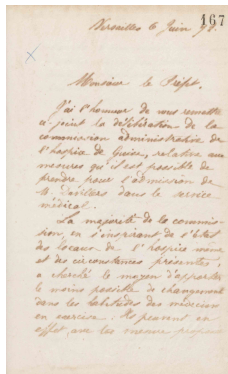 167
Versailles 6 Juin 98.
Monsieur le Préfet,
J'ai l'honneur de vous remettre
ci joint la délibération de la
commission administrative de
l'hospice de Guise, relative aux
mesures qu'il est possible de
prendre pour l'admission de
dans le service
médical.
La majorité de la commis-
sion, en s'inspirant de l'état
des locaux de l'hospice
et des circonstances présentes,
a cherché le moyen d'apporter
le moins possible de changement
dans les habitudes des médecins
en exercice. Ils peuvent en
effet, avec les mesures